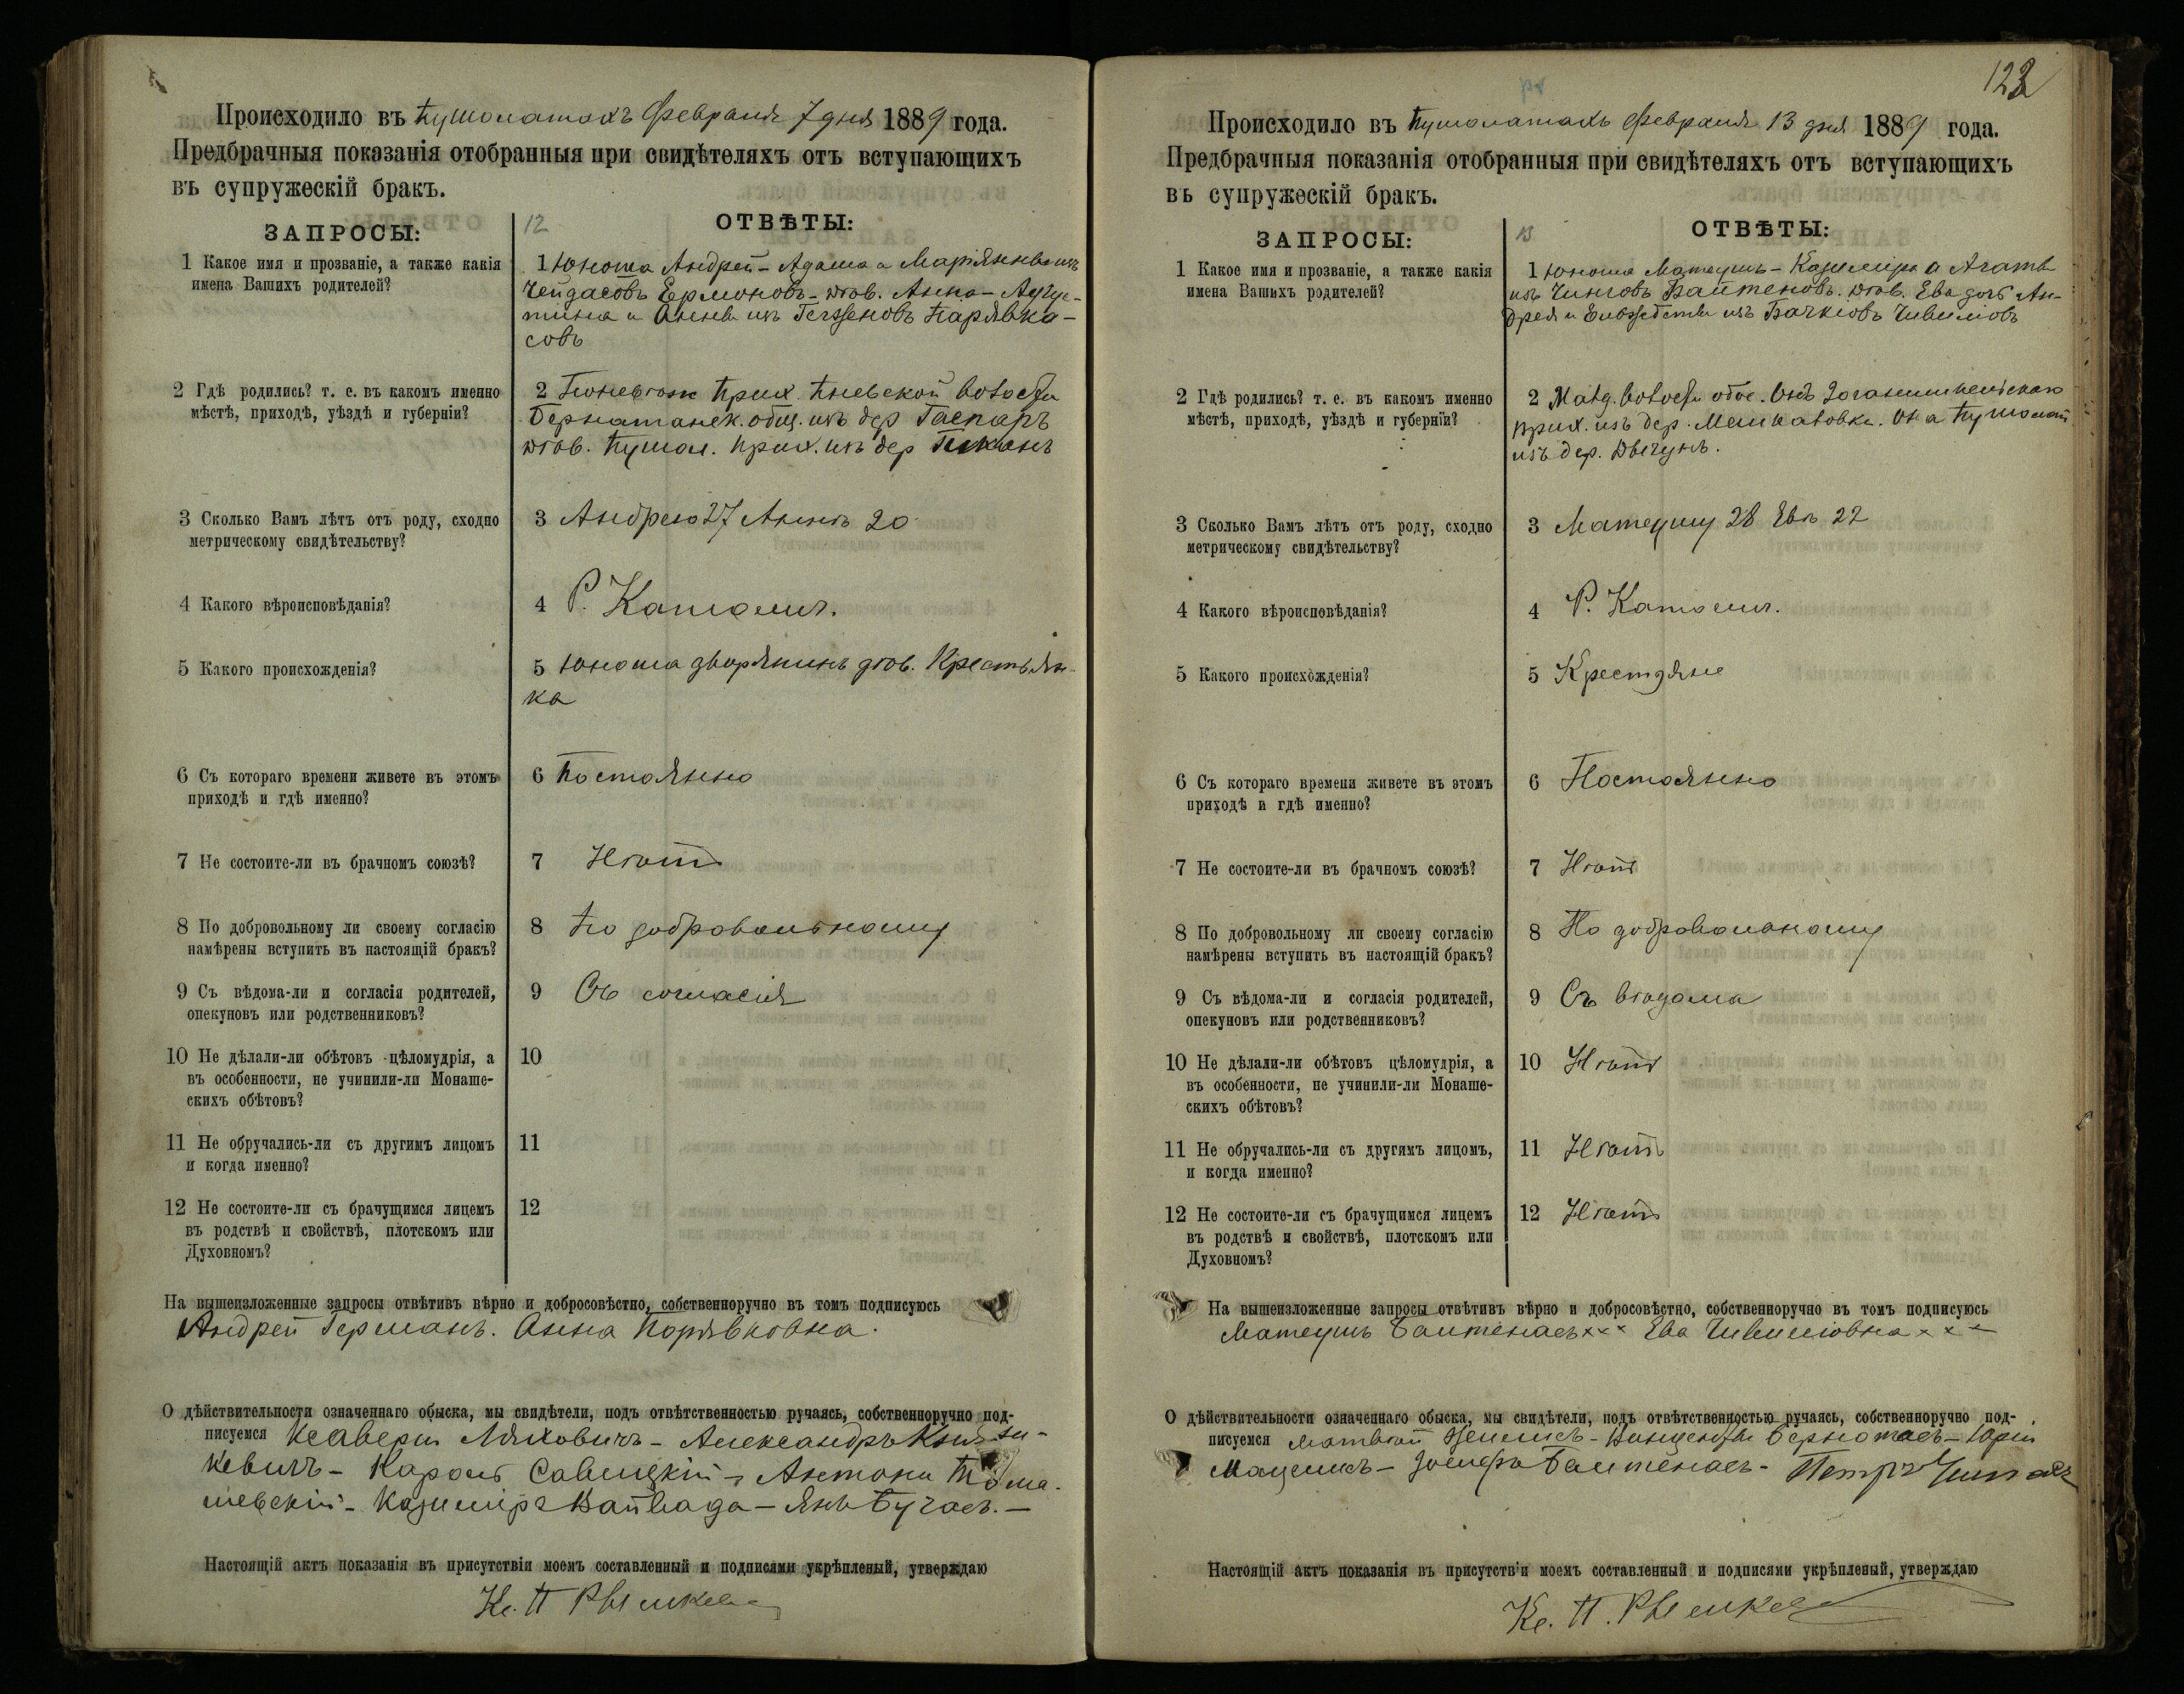 Происходило въ Пушолатахъ Февраля 7 дня 1889 года.
Предбрачныя показанія отобранныя при свидѣтеляхъ отъ вступающихъ
въ супружескій бракъ.
ЗАПРОСЫ:
12
ОТВѢТЫ:
1 Какое имя и прозваніе, а также какія
имена Вашихъ родителей?
1 Юноша Андрей – Адама и Маріянны изъ
Ермоновъ – дѣв. Анна – Авгу-
стина и Анны изъ Парявка-
совъ
2 Гдѣ родились? т. е. въ какомъ именно
мѣстѣ, приходѣ, уѣздѣ и губерніи?
2 Поневѣж прих.
общ. изъ дер Гаспаръ
дѣв. Пушол. прих. изъ дер
3 Сколько Вамъ лѣтъ отъ роду, сходно
метрическому свидѣтельству?
3 Андрею 27 Аннѣ 20
4 Какого вѣроисповѣданія?
4 Р. Католич.
5 Какого происхожденія?
5 Юноша дворянинъ дѣв. Крестьян-
ка
6 Съ котораго времени живете въ этомъ
приходѣ и гдѣ именно?
6 Постоянно
7 Не состоите-ли въ брачномъ союзѣ?
7 Нѣтъ
8 По добровольному ли своему согласію
намѣрены вступить въ настоящій бракъ?
8 По добровольному
9 Съ вѣдома-ли и согласія родителей,
опекуновъ или родственниковъ?
9 Съ согласія
10 Не дѣлали-ли обѣтовъ цѣломудрія, а
въ особенности, не учинили-ли Монаше-
скихъ обѣтовъ?
10
11 Не обручались-ли съ другимъ лицомъ
и когда именно?
11
12 Не состоите-ли съ брачущимся лицемъ
въ родствѣ и свойствѣ, плотскомъ или
Духовномъ?
12
На вышеизложенные запросы отвѣтивъ вѣрно и добросовѣстно, собственноручно въ томъ подписуюсь
Андрей Германъ. Анна Порявковна.
О дѣйствительности означеннаго обыска, мы свидѣтели, подъ отвѣтственностью ручаясь, собственноручно под-
писуемся Ксаверы Ляховичъ – Александръ
Кароль Савицкій – Антони Тома-
шевскій – Казимиръ – Янъ Бучасъ. –
Настоящій актъ показанія въ присутствіи моемъ составленный и подписями укрѣпленый, утверждаю
Кс. П
122
Происходило въ Пушолатахъ Февраля 13 дня 1889 года.
Предбрачныя показанія отобранныя при свидѣтеляхъ отъ вступающихъ
въ супружескій бракъ.
ЗАПРОСЫ:
13
ОТВѢТЫ:
1 Какое имя и прозваніе, а также какія
имена Вашихъ родителей?
1 Юноша Матеушъ – Казиміра и Агаты
изъ Байтеновъ. дѣв. Ева дочь Ан-
дрея и Елизабеты изъ
2 Гдѣ родились? т. е. въ какомъ именно
мѣстѣ, приходѣ, уѣздѣ и губерніи?
2 обое. Онъ
прих. изъ дер. Она Пушолат
изъ дер.
3 Сколько Вамъ лѣтъ отъ роду, сходно
метрическому свидѣтельству?
3 Матеушу 28 Евѣ 22
4 Какого вѣроисповѣданія?
4 Р. Католич.
5 Какого происхожденія?
5 Крестьяне
6 Съ котораго времени живете въ этомъ
приходѣ и гдѣ именно?
6 Постоянно
7 Не состоите-ли въ брачномъ союзѣ?
7 Нѣтъ
8 По добровольному ли своему согласію
намѣрены вступить въ настоящій бракъ?
8 По добровольному
9 Съ вѣдома-ли и согласія родителей,
опекуновъ или родственниковъ?
9 Съ вѣдома
10 Не дѣлали-ли обѣтовъ цѣломудрія, а
въ особенности, не учинили-ли Монаше-
скихъ обѣтовъ?
10 Нѣтъ
11 Не обручались-ли съ другимъ лицомъ,
и когда именно?
11 Нѣтъ
12 Не состоите-ли съ брачущимся лицемъ
въ родствѣ и свойствѣ, плотскомъ или
Духовномъ?
12 Нѣтъ
На вышеизложенные запросы отвѣтивъ вѣрно и добросовѣстно, собственноручно въ томъ подписуюсь
Матеушъ Байтенасъ x x x Ева x x x
О дѣйствительности означеннаго обыска, мы свидѣтели, подъ отвѣтственностью ручаясь, собственноручно под-
писуемся Матвѣй – Винценты Бернотасъ – Юрій
– Байтенасъ – Петръ
Настоящій актъ показанія въ присутствіи моемъ составленный и подписями укрѣпленый, утверждаю
Кс. П.